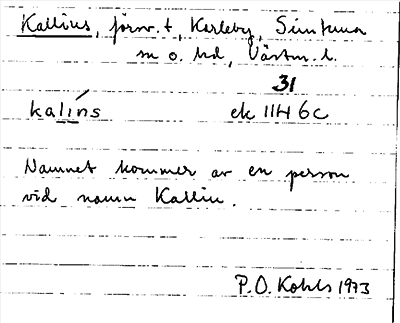 Kallins, försv. t., Karleby, Simtuna
sn o. hd, Västm. l.
31
kalíns ek 11H 6c
Namnet kommer av en person
vid namn Kallin.
P.O. Kohls 1973